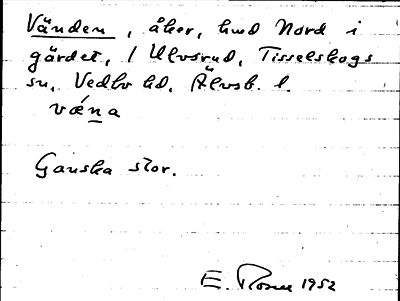 Vänden, åker, hmd Nord i
gärdet, 1 Ulvsrud, Tisselskogs
sn, Vedbo hd, Älvsb. l.
væ´na
Ganska stor.
E. Rosell 1952